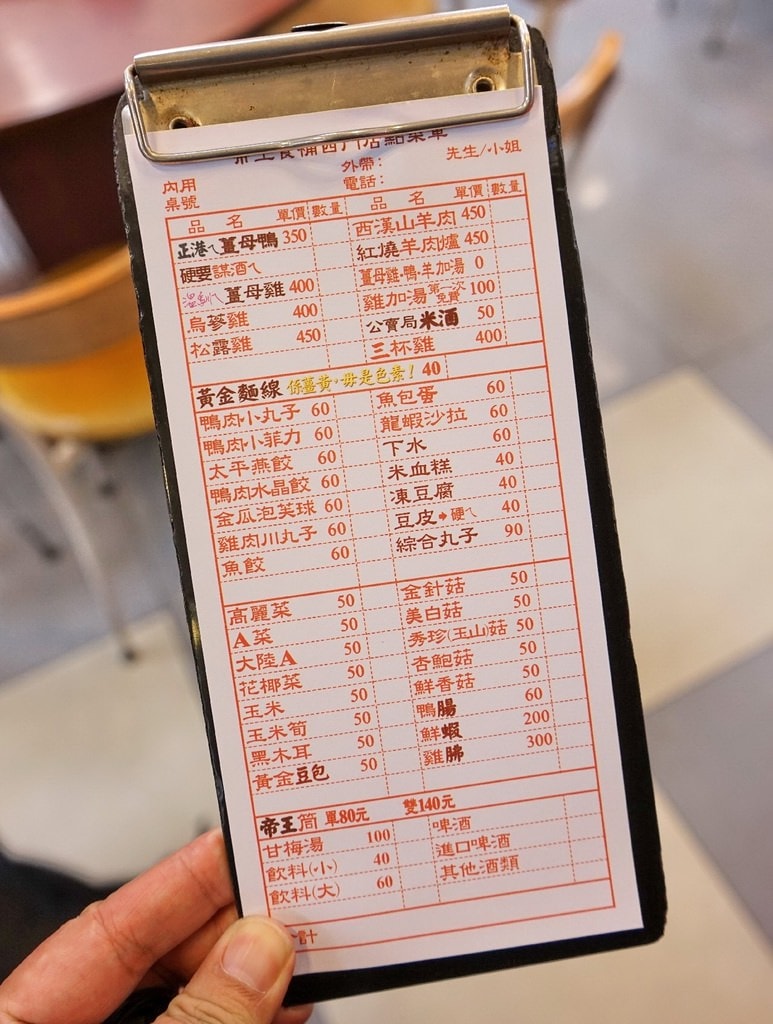 帝王食補西門店點菜單
外帶： 先生/小姐
內用 電話：
桌號
品 名 單價 數量 品 名 單價 數量
正港ㄟ薑母鴨 350 西漢山羊肉 450
硬要謀酒ㄟ 紅燒羊肉爐 450
溫馴ㄟ薑母雞 400 薑母雞.鴨.羊加湯 0
烏蔘雞 400 雞加湯 第一次免費 100
松露雞 450 公賣局米酒 50
三杯雞 400
黃金麵線 係薑黃，毋是色素！ 40
鴨肉小丸子 60 魚包蛋 60
鴨肉小菲力 60 龍蝦沙拉 60
太平燕餃 60 下水 60
鴨肉水晶餃 60 米血糕 40
金瓜泡芙球 60 凍豆腐 40
雞肉川丸子 60 豆皮➧硬ㄟ 40
魚餃 60 綜合丸子 90
高麗菜 50 金針菇 50
A菜 50 美白菇 50
大陸A 50 秀珍(玉山)菇 50
花椰菜 50 杏鮑菇 50
玉米 50 鮮香菇 50
玉米筍 50 鴨腸 60
黑木耳 50 鮮蝦 200
黃金豆包 50 雞胇 300
帝王筒 單80元 雙140元
甘梅湯 100 啤酒
飲料(小) 40 進口啤酒
飲料(大) 60 其他酒類
計